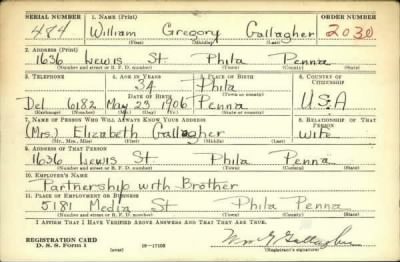 SERIAL NUMBER 1. NAME (Print) ORDER NUMBER
484 William Gregory Gallagher 2030
(First) (Middle) (Last)
2. ADDRESS (Print)
1636 Lewis St Phila Penna
(Number and street or R. F. D. number) (Town) (County) (State)
3. TELEPHONE 4. AGE IN YEARS 5. PLACE OF BIRTH 6. COUNTRY OF CITIZENSHIP
34 Phila
DATE OF BIRTH (Town or county)
Del 6182 May 23 1906 Penna U.S.A
(Exchange) (Number) (Mo.) (Day) (Yr.) (State or country)
7. NAME OF PERSON WHO WILL ALWAYS KNOW YOUR ADDRESS 8. RELATIONSHIP OF THAT PERSON
(Mrs.) Elizabeth Gallagher Wife
(Mr., Mrs., Miss) (First) (Middle) (Last)
9. ADDRESS OF THAT PERSON
1636 Lewis St Phila Penna
(Number and street or R. F. D. number) (Town) (County) (State)
10. EMPLOYER'S NAME
Partnership with Brother
11. PLACE OF EMPLOYMENT OR BUSINESS
5181 Media St Phila Penna
(Number and street or R. F. D. number) (Town) (County) (State)
I AFFIRM THAT I HAVE VERIFIED ABOVE ANSWERS AND THAT THEY ARE TRUE.
REGISTRATION CARD Wm G Gallagher
D. S. S. Form 1 (over) 16—17105 (Registrant's signature)